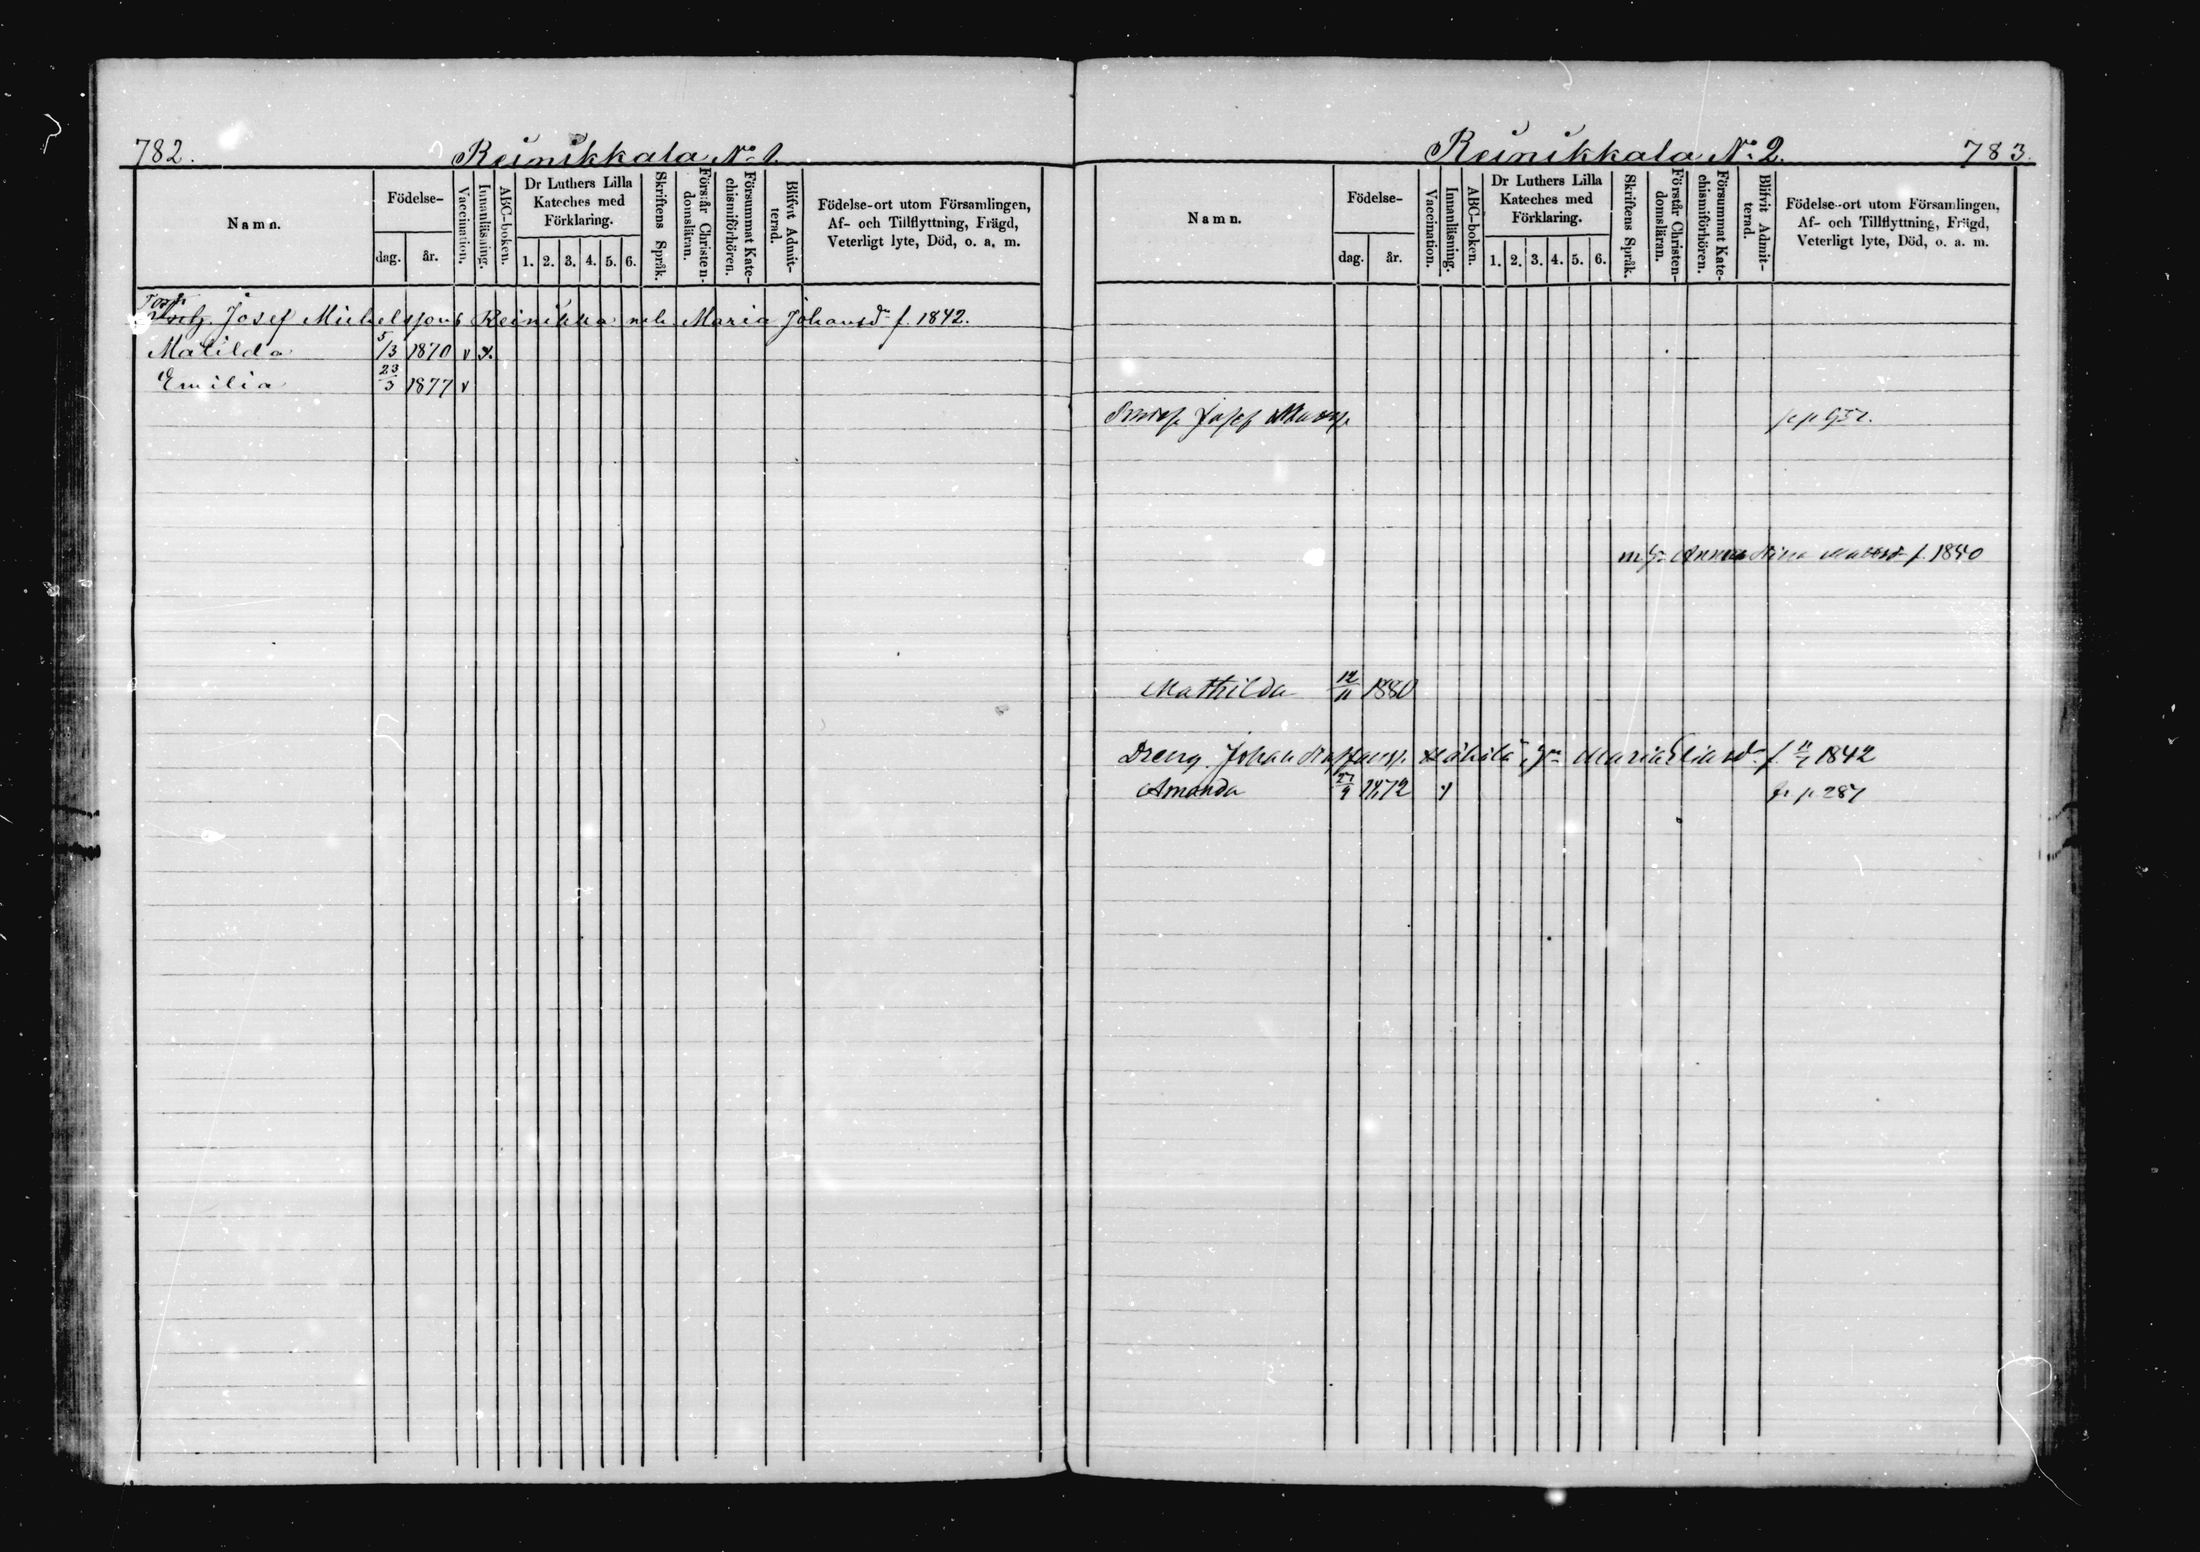 782.
Reinikkala No 1.
Namn.
Födelse-
dag.
år.
Vaccination.
Innanläsning.
ABC-boken.
Dr Luthers Lilla
Kateches med
Förklaring.
1. 2. 3. 4. 5. 6.
Skriftens Språk.
Förstår Christen-
domsläran.
Försummat Kate-
chismiförhören.
Blifvit Admit-
terad.
Födelse-ort utom Församlingen,
Af- och Tillflyttning, Frägd,
Veterligt lyte, Död, o. a. m.
Josef Michelssons Reinikka Maria Johansdr f. 1842.
Matilda 5/3 1870 v x.
Emilia 23/3 1877 v
Reinikkala No 2.
783.
Namn.
Födelse-
dag.
år.
Vaccination.
Innanläsning.
ABC-boken.
Dr Luthers Lilla
Kateches med
Förklaring.
1. 2. 3. 4. 5. 6.
Skriftens Språk.
Förstår Christen-
domsläran.
Försummat Kate-
chismiförhören.
Blifvit Admit-
terad.
Födelse-ort utom Församlingen,
Af- och Tillflyttning, Frägd,
Veterligt lyte, Död, o. a. m.
Josef
Anna Stina f. 1850
Mathilda 12/11 1880
Dreng. Johan Maria Eliaedr f. 1842
Amanda 1872 v fr p. 287